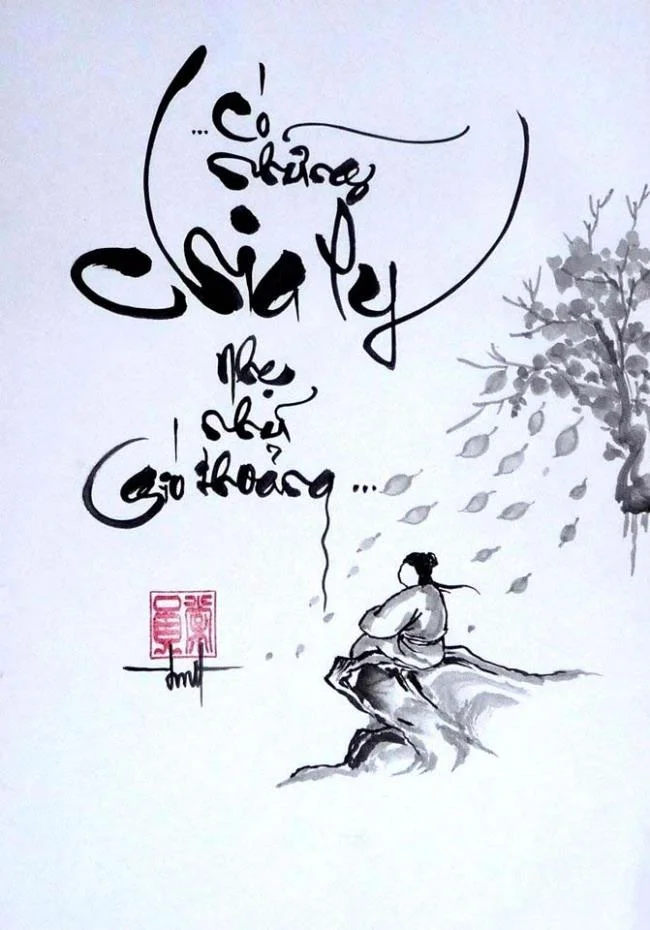 ... Có
những
chia ly
nhẹ
như
gió thoảng ...